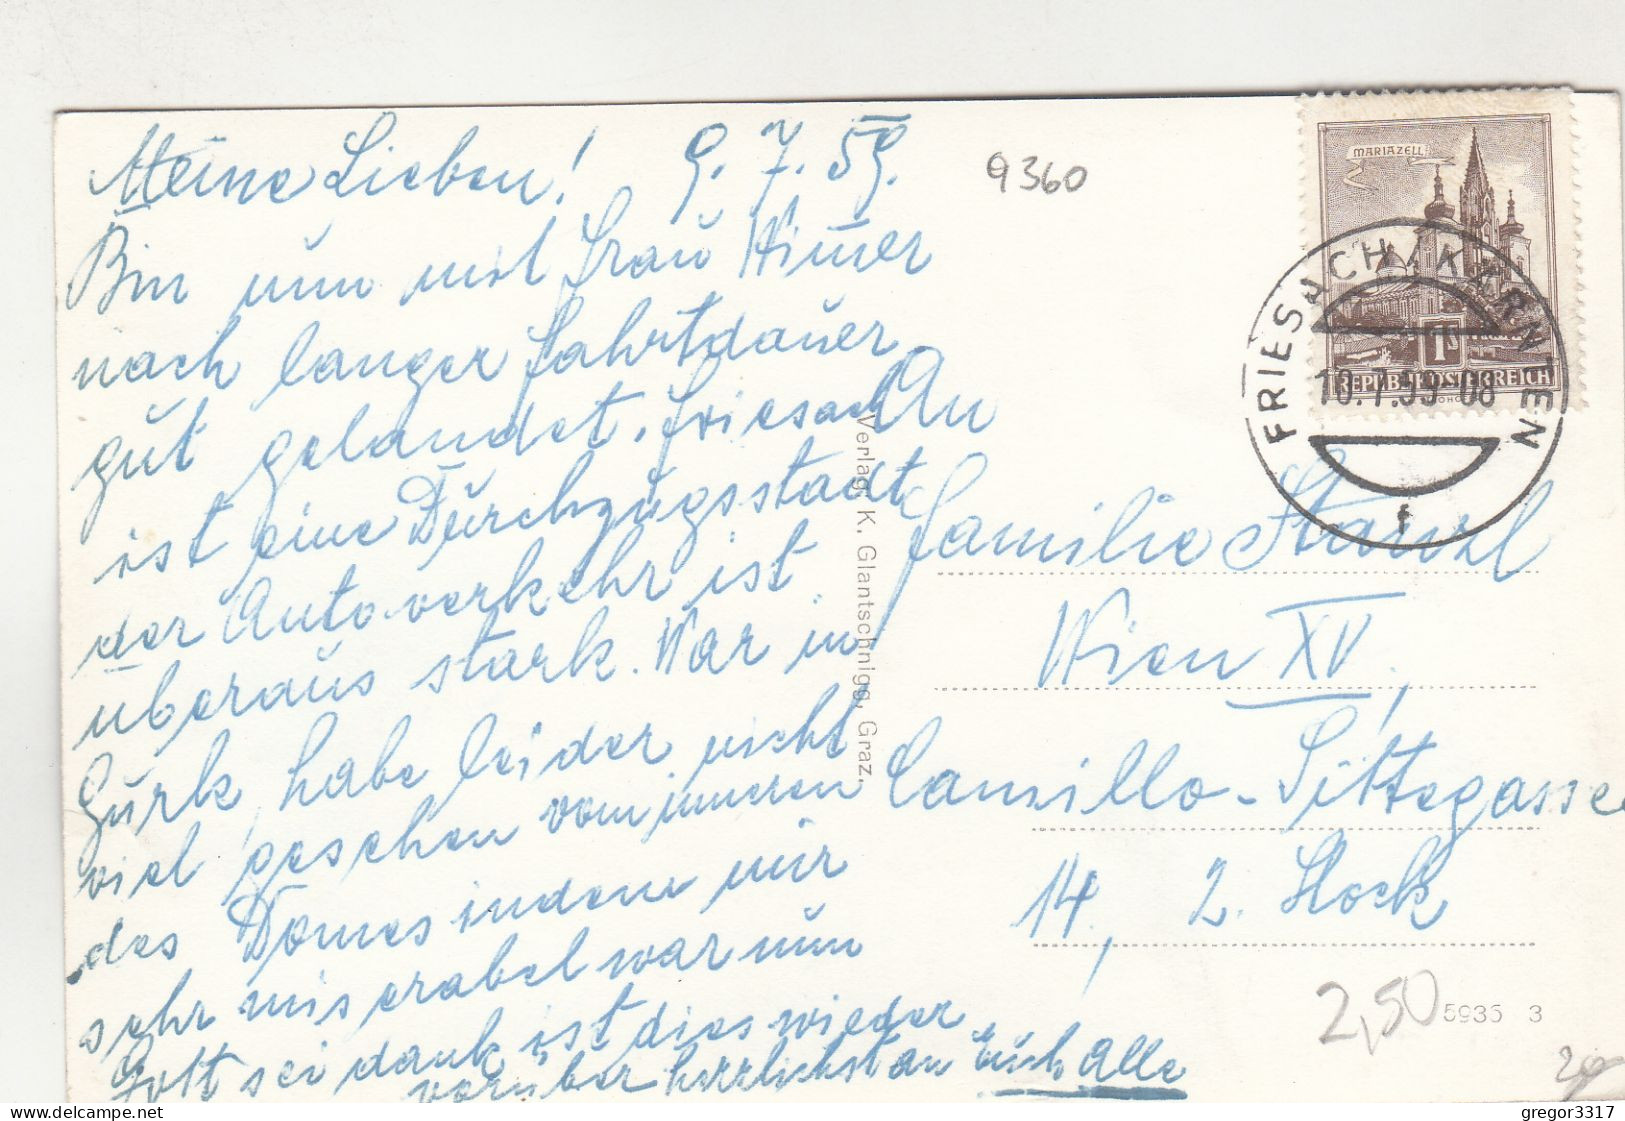 Meine Lieben! 9.7.59.
9360
Bin nun mit Frau
nach langer Fahrtdauer
gut gelandet. Friesach
ist eine Durchzugsstadt
der Autoverkehr ist
überaus stark. War in
Gurk, habe leider nicht
viel gesehen vom inneren
des Domes indem mir
sehr miserabel war nun
Gott sei dank ist dies wieder
vorüber herzlichst an Euch alle
Verlag K. Glantschnigg, Graz.
MARIAZELL
1 S
REPUBLIK ÖSTERREICH
FRIESACH / KÄRNTEN
10.7.59-08
f
An
Familie Stanzl
Wien XV.,
Camillo-Sittegasse
14, 2. Stock
2,50
5935 3
delcampe.net
gregor3317